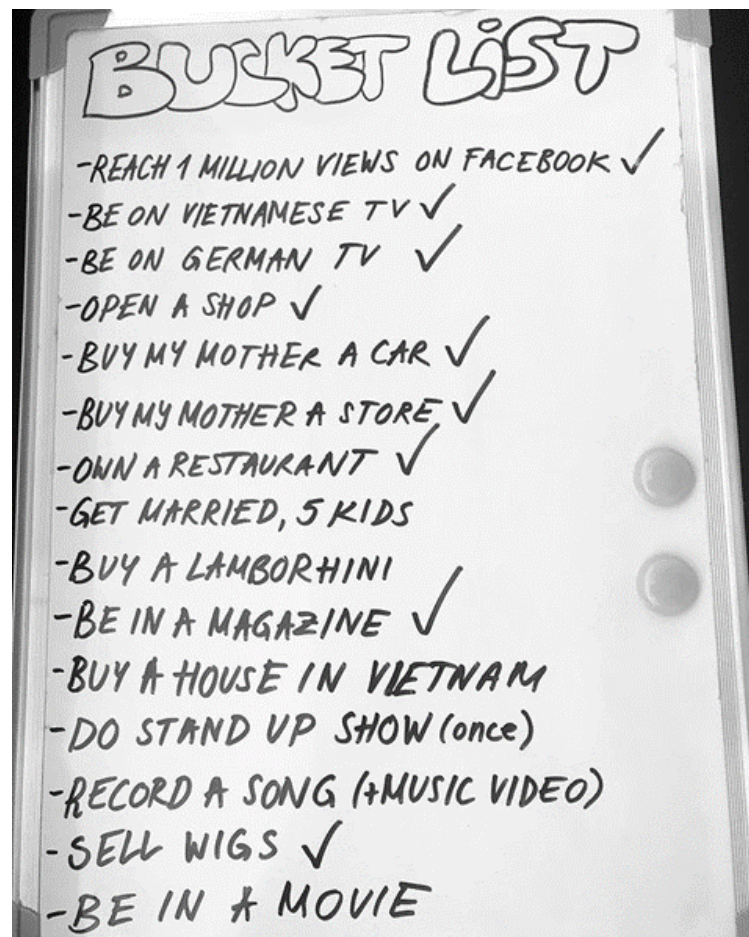 BUCKET LiST
-REACH 1 MILLION VIEWS ON FACEBOOK ✓
-BE ON VIETNAMESE TV ✓
-BE ON GERMAN TV ✓
-OPEN A SHOP ✓
-BUY MY MOTHER A CAR ✓
-BUY MY MOTHER A STORE ✓
-OWN A RESTAURANT ✓
-GET MARRIED, 5 KIDS
-BUY A LAMBORHINI
-BE IN A MAGAZINE ✓
-BUY A HOUSE IN VIETNAM
-DO STAND UP SHOW (once)
-RECORD A SONG (+MUSIC VIDEO)
-SELL WIGS ✓
-BE IN A MOVIE